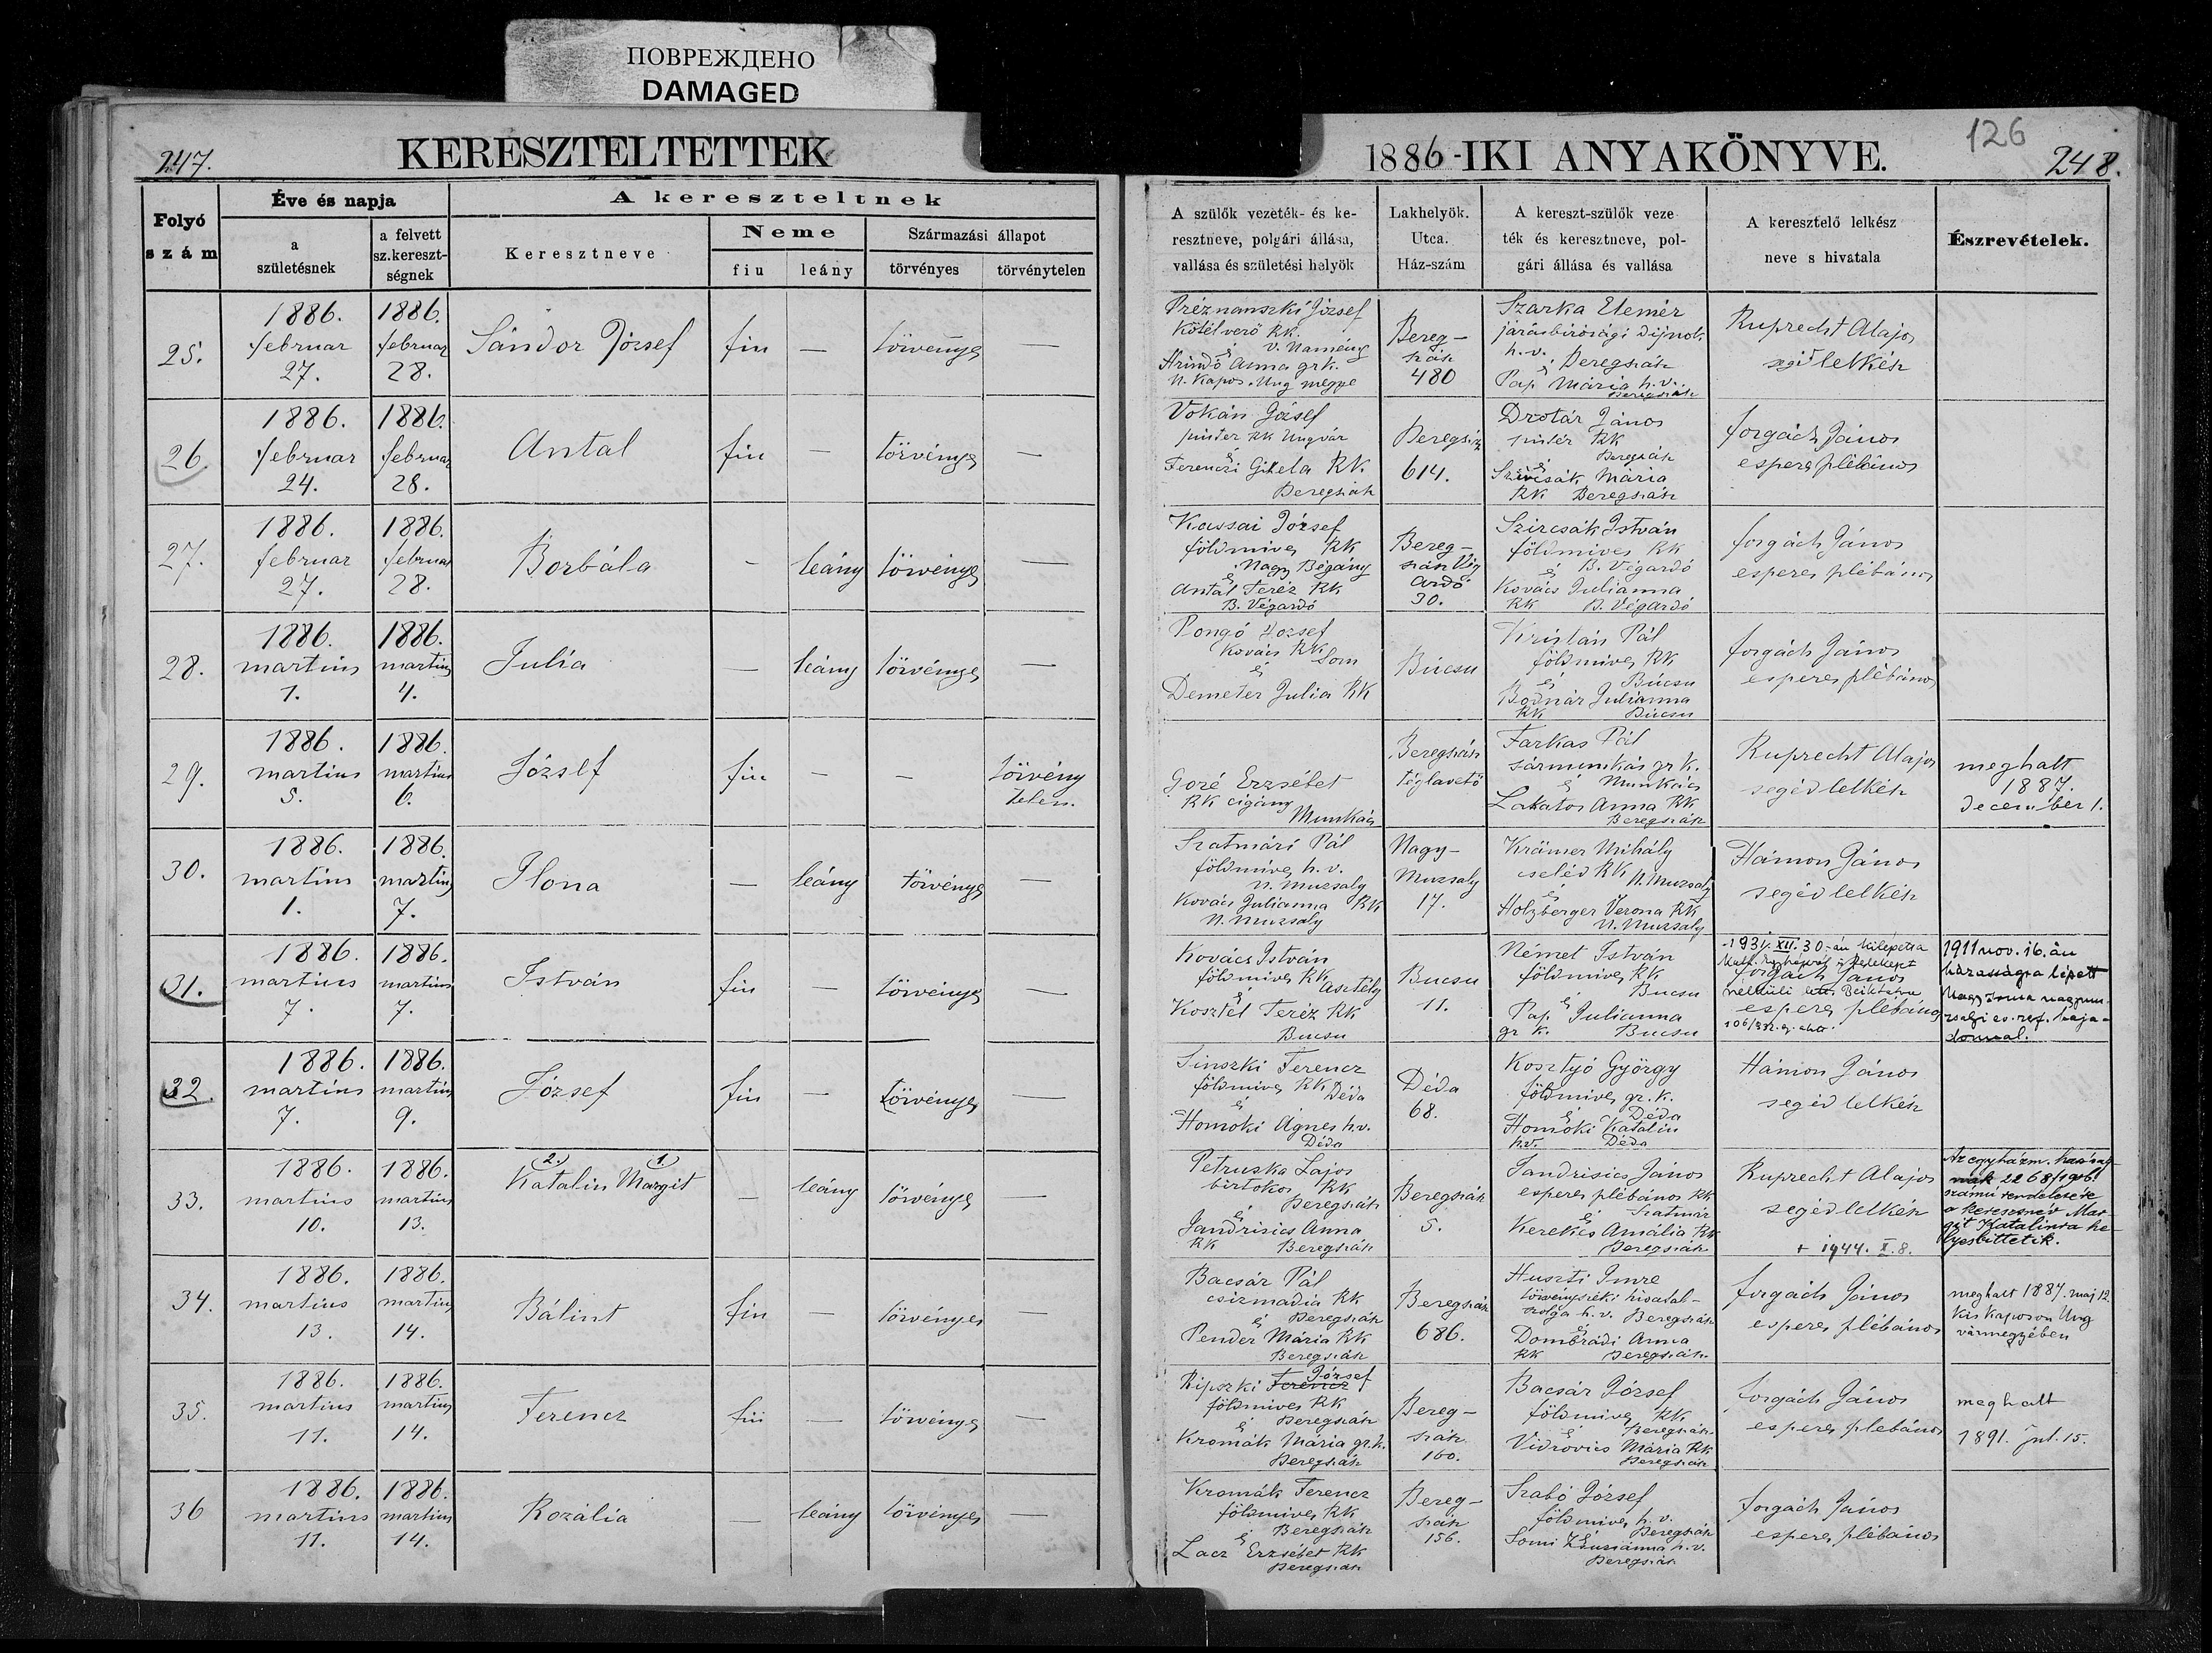 ПОВРЕЖДЕНО
DAMAGED
247.
KERESZTELTETTEK
1886-IKI ANYAKÖNYVE.
126
248.
Folyó szám
Éve és napja
a születésnek
a felvett sz.kereszt-ségnek
A kereszteltnek
Keresztneve
Neme
fiu
leány
Származási állapot
törvényes
törvénytelen
A szülők vezeték- és ke-
resztneve, polgári állása,
vallása és születési helyök
Lakhelyök.
Utca.
Ház-szám
A kereszt-szülők veze
ték és keresztneve, pol-
gári állása és vallása
A keresztelő lelkész
neve s hivatala
Észrevételek.
25.
1886. februar 27.
1886. februar 28.
Sándor József
fiu
—
törvényes
—
Préznanszki József
kötélverő RK.
V. Namény
és
Hrindó Anna grk.
N. Kapos. Ung megye
Bereg-
szász
480
Szarka Elemér
járásbirósági dijnok
h.v. Beregszász
és
Pap Mária h.v.
Beregszász
Ruprecht Alajos
segédlelkész
26
1886. februar 24.
1886. februar 28.
Antal
fiu
—
törvényes
—
Vokán József
pintér RK Ungvár
és
Ferenczi Gizela RK.
Beregszász
Beregszász
614.
Drotár János
pintér RK
Beregszász
és
Mária
RK Beregszász
Forgách János
esperes plébános
27.
1886. februar 27.
1886. februar 28.
Borbála
-
leány
törvényes
—
Kassai József
földmives RK
Nagy Bégány
és
Antal Teréz RK
B. Végardó
Bereg-
szász Vég
Ardó
30.
Szircsák István
földmives RK
és B. Végardó
Kovács Julianna
RK B. Végardó
Forgách János
esperes plébános
28.
1886. martius 1.
1886. martius 4.
Julia
—
leány
törvényes
—
Pongó József
Kovács RK Som
és
Demeter Julia RK
Búcsu
Kristán Pál
földmives RK
és Búcsu
Bodnár Julianna
RK Búcsu
Forgách János
esperes plébános
29.
1886. martius 5.
1886. martius 6.
József
fiu
—
—
törvény
telen.
Gozé Erzsébet
RK cigány
Munkács
Beregszász
téglavető
Farkas Pál
sármunkás gr k.
és Munkács
Lakatos Anna RK
Beregszász
Ruprecht Alajos
segédlelkész
meghalt
1887.
december 1.
30.
1886. martius 1.
1886. martius 7.
Ilona
—
leány
törvényes
—
Szatmári Pál
földmives h.v.
N. Muzsaly
Kovács Julianna RK
N. Muzsaly
Nagy-
Muzsaly
17.
Krämer Mihály
cseléd RK N. Muzsaly
és
Holzberger Verona RK
N. Muzsaly
Hámon János
segédlelkész
31.
1886. martius 7.
1886. martius 7.
István
fiu
—
törvényes
—
Kovács István
földmives RK Asztély
és
Kosztel Teréz RK
Bucsu
Bucsu
11.
Német István
földmives RK
és Bucsu
Pap Julianna
gr k. Bucsu
XII. 30-án kilépett a
Forgách János
esperes plébános
1911 nov. 16. án
házasságra lépett
Nagy
ev. ref. haja-
donnal.
32.
1886. martius 7.
1886. martius 9.
József
fiu
—
törvényes
—
Sinszki Ferencz
földmives RK Déda
és
Homoki Ágnes h.v.
Déda
Déda
68.
Kosztyó György
földmives gr. k.
és Déda
Homoki Katalin
h.v. Déda
Hámon János
segédlelkész
33.
1886. martius 10.
1886. martius 13.
2. 1.
Katalin Margit
—
leány
törvényes
—
Petruska Lajos
birtokos RK
Beregszász
és
Jandrisics Anna
RK Beregszász
Beregszász
5.
Jandrisics János
esperes plébános RK
és Szatmár
Kerekes Amália RK
Beregszász
Ruprecht Alajos
segédlelkész
+ 1944. X. 8.
Az egyházm. hatóság-
nak 2268/1906.
számú rendeletére
a keresztnév Mar-
git Katalinra he-
lyesbittetik.
34.
1886. martius 13.
1886. martius 14.
Bálint
fiu
—
törvényes
—
Bacsár Pál
csizmadia RK
és Beregszász
Pender Mária RK
Beregszász
Beregszász
686.
Huszti Imre
törvényszéki hivatal-
szolga h.v. Beregszász
és
Dombrádi Anna
RK Beregszász
Forgách János
esperes plébános
meghalt 1887. maj 12.
Kis Kaposon Ung
vármegyében
35.
1886. martius 11.
1886. martius 14.
Ferencz
fiu
—
törvényes
—
József
Ripszki Ferencz
földmives RK
és Beregszász
Kromák Mária gr.k.
Beregszász
Bereg-
szász
160.
Bacsár József
földmives RK
és Beregszász
Vidrovics Mária RK
Beregszász
Forgách János
esperes plébános
meghalt
1891. jul. 15.
36
1886. martius 11.
1886. martius 14.
Rozália
—
leány
törvényes
—
Kromák Ferencz
földmives RK
és Beregszász
Lacz Erzsébet RK
Beregszász
Bereg-
szász
156.
Szabó József
földmives h.v.
és Beregszász
Somi Zsuzsánna h.v.
Beregszász
Forgách János
esperes plébános